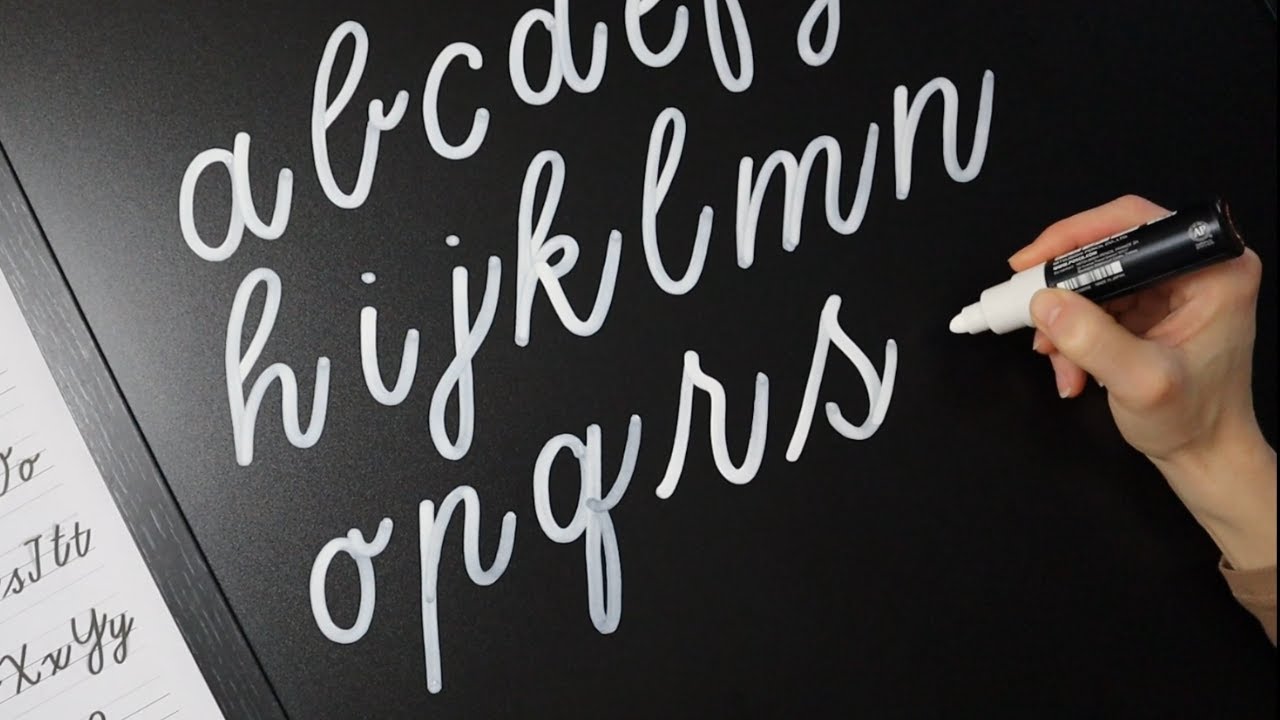 a b c d e f g
h i j k l m n
o p q r s
o
s T t t
X x Y y
AP